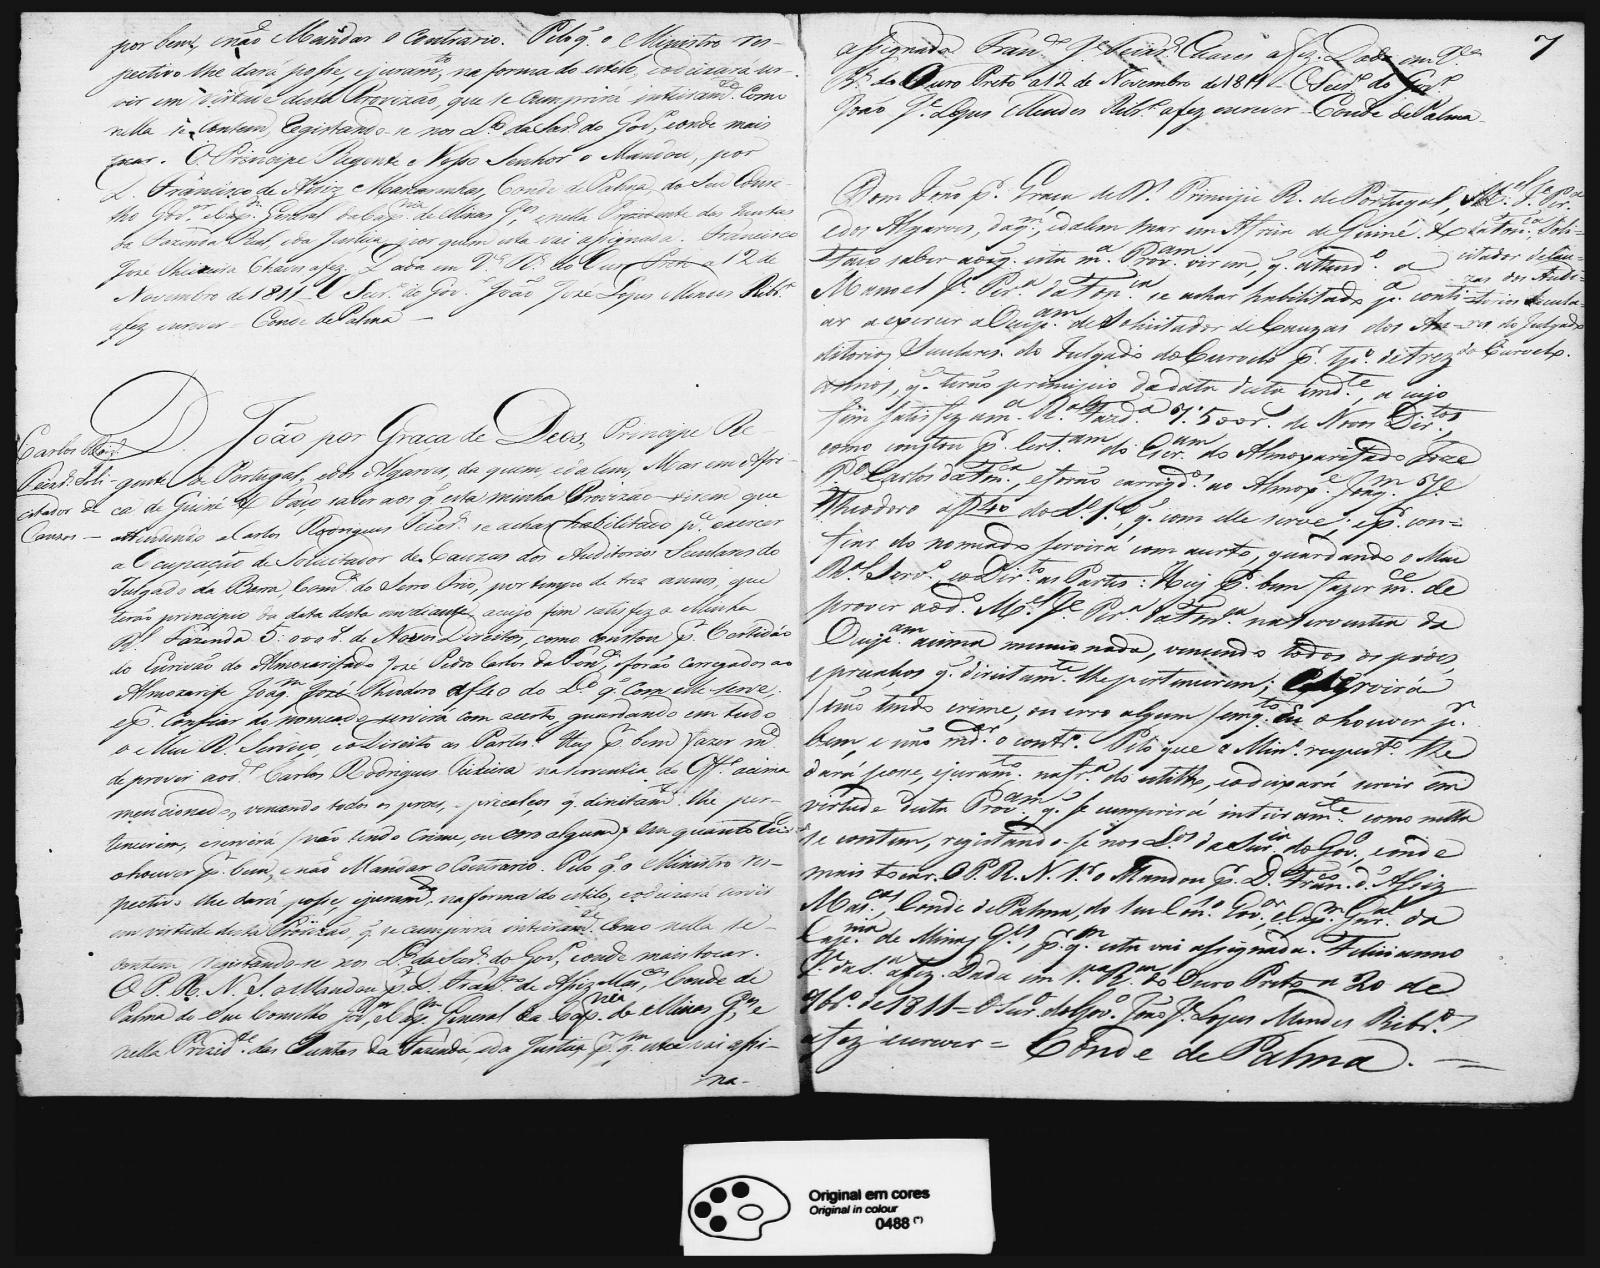 por bem, e não Mandar o Contrario. Pelo q. o Ministro res-
pectivo lhe dará posse, e juram.to, na forma do estilo, e o deixará ser-
vir em virtude desta Provizão, que se cumprirá inteiram.te como
nella se contem, registando-se nos L.os da Secr. do Gov.o, e onde mais
tocar. O Principe Regente Nosso Senhor o Mandou, por
D. Francisco de Assiz Mascarenhas, Conde de Palma, do Seu Conse-
lho Gov.or e Cap.m General da Cap.nia de Minas G.es, e nella Prezidente das Juntas
da Fazenda Real, e da Justiça, por quem esta vai assignada. Francisco
José Teixeira Chaves a fez. Dada em V.a R. do Ouro Preto a 12 de
Novembro de 1811 O Secr.o do Gov.o João José Lopes Mendes Rib.ro
a fez escrever = Conde de Palma —
Carlos Roiz
Teixr.a Soli-
citador de
Cauzas —
D. João por Graça de Deos, Principe Re-
gente de Portugal, e dos Algarves, da quem, e dalem, Mar em Afri-
ca de Guiné & Faço saber aos q. esta minha Provizão virem que
attendendo a Carlos Rodrigues Teixr.a se achar habilitado p.a exercer
a Occupação de Solicitador de Cauzas dos Auditorios Seculares do
Julgado da Barra, Com.ca do Serro Frio, por tempo de tres annos, que
terão principio da data desta em diante, a cujo fim satisfez a Minha
R.l Fazenda 5:000 r. de Novos Direitos, como constou p.r Certidão
do Escrivão do Almoxarifado José Pedro Carlos da Fon.ca, e forão carregados ao
Almoxarife Joaq.m José Theodoro a f 40 do L.o q. com elle serve.
e p.r Confiar do nomeado servirá com acerto, guardando em tudo
o Meu R.l Serviço, e o Direito as Partes: Hey p.r bem fazer m.ce
de prover ao d.o Carlos Rodrigues Teixeira na serventia do Off.o acima
mencionado, vencendo todos os proes, e precalços, q. direitam.te lhe per-
tencerem, e servirá (não tendo Crime, ou erro algum) em quanto Eu
o houver p.r bem, e não Mandar o Contrario. Pelo q. o Ministro res-
pectivo lhe dará posse, e juram.to na forma do estilo, e o deixará servir
em virtude desta Provizão, q. se cumprirá inteiram.te Como nella se
contem registando-se nos L.os da Secr. do Gov.o, e onde mais tocar.
O P. R. N. S. o Mandou p.r D. Fran.co de Assiz Mas.cas, Conde de
Palma do Seu Conselho Gov.or, e Cap.m General da Cap.nia de Minas G.es, e
nella Prezid.te das Juntas da Fazenda, e da Justiça p.r q.m esta vai assi-
na-
7
assignada. Fran.co J.e Teixr.a Chaves a fez. Dada em V.a
R.l do Ouro Preto a 12 de Novembro de 1811 O Secr.o do Gov.o
João J.e Lopes Mendes Rib.ro a fez escrever = Conde de Palma —
M.el J.e Per.a
da Fon.ca, Soli-
citador de Cau-
zas dos Audi-
torios Secula-
res do Julgado
do Curvelo.
Dom João p.r Graca de D.s Principe R. de Portugal,
e dos Algarves, daq.m, e dalem Mar em Africa de Guiné &
Faço saber aos q. esta m.a Prov.am virem, q. attend.o a
Manoel J.e Per.a da Fon.ca se achar habilitado p.a conti-
ar a exercer a Occup.am de Solicitador de Cauzas dos Au-
ditorios Seculares do Julgado do Curvelo p.r tp.o de trez
annos, q. terão principio da data desta em d.te, a cujo
fim satisfez a m.a R.al Fazd.a 7:500 r. de Novos Dir.tos,
como constou p.r Cert.am do Escr.am do Almoxarifado Joze
P.o Carlos da Fon.ca, e forão carregd.os ao Almox.e Joaq.m J.e
Theodoro a f 40 do L.o 1.o q. com elle serve; e p.r con-
fiar do nomeado servirá com acerto, guardando o Meu
R.al Serv.o, e o Dir.to as Partes: Hey p.r bem fazer m.ce de
prover ao d.o M.el J.e Per.a da Fon.ca na serventia da
Occup.am acima mencionada, vencendo todos os próes,
e precalços q. direitam.te lhe pertencerem; e servirá
(não tendo crime, ou erro algum) emq.to Eu o houver p.r
bem, e não md.r o contr.o. Pelo que o Min.o respect.o lhe
dará posse, e juram.to na fr.a do estillo, e o deixará servir em
virtude desta Prov.am, q. se cumprirá inteiram.te como nella
se contem, registando-se nos L.os da Secr.ia do Gov.o, e onde
mais tocar. O P. R. N. S.r o Mandou p.r D. Fran.co d' Assiz
Mas.cas, Conde de Palma, do Seu Con.o Gov.or, e Cap.m Gen.al da
Cap.nia de Minas G.es, p.r q.m esta vai assignada. Feliciano
J.e da S.a a fez. Dada em V.a R.al do Ouro Preto a 20 de
9br.o de 1811 = O Secr.o do Gov.o João J.e Lopes Mendes Ribr.o
a fez escrever = Conde de Palma. —
Original em cores
Original in colour
0488 (*)